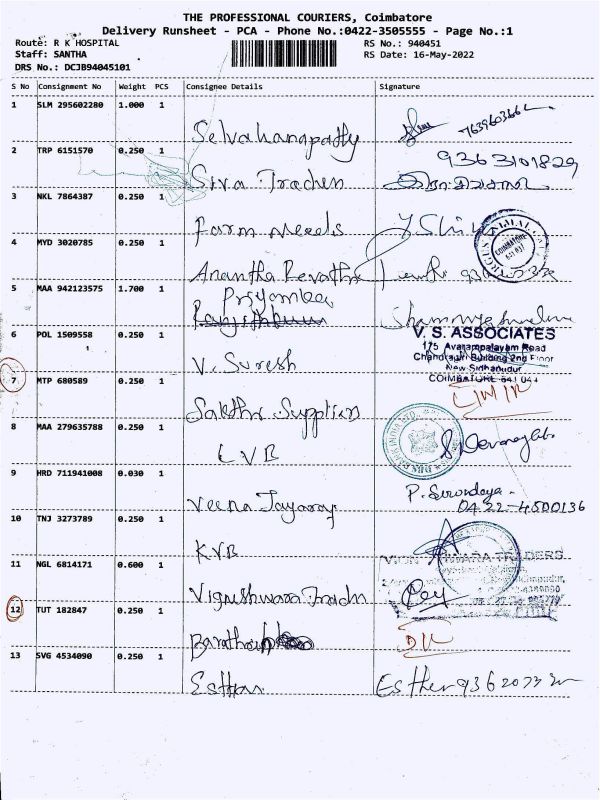 THE PROFESSIONAL COURIERS, Coimbatore
Delivery Runsheet - PCA - Phone No.:0422-3505555 - Page No.:1
Route: R K HOSPITAL
RS No.: 940451
Staff: SANTHA
RS Date: 16-May-2022
DRS No.: DCJB94045101
S No Consignment No Weight PCS Consignee Details Signature
1 SLM 295602280 1.000 1
Selvahanapathy
2 TRP 6151570 0.250 1 9363101829
Siva Traders
3 NKL 7864387 0.250 1
Farm Needs
4 MYD 3020785 0.250 1
COIMBATORE
Anantha Revathi
5 MAA 942123575 1.700 1
Priyanka
V. S. ASSOCIATES
6 POL 1509558 0.250 1
175 Avarampalayam Road
Chandragiri Building 2nd Floor
V. Suresh
New Sidhapudur
7 MTP 680589 0.250 1
COIMBATORE 641 044
Sakthi Suppliers
8 MAA 279635788 0.250 1
LVB
9 HRD 711941008 0.030 1
Veena Jayaraj
0422-4500136
10 TNJ 3273789 0.250 1
KVB
11 NGL 6814171 0.600 1
TRADERS
Vigneshwara Traders
12 TUT 182847 0.250 1
13 SVG 4534090 0.250 1
Esther
Esther